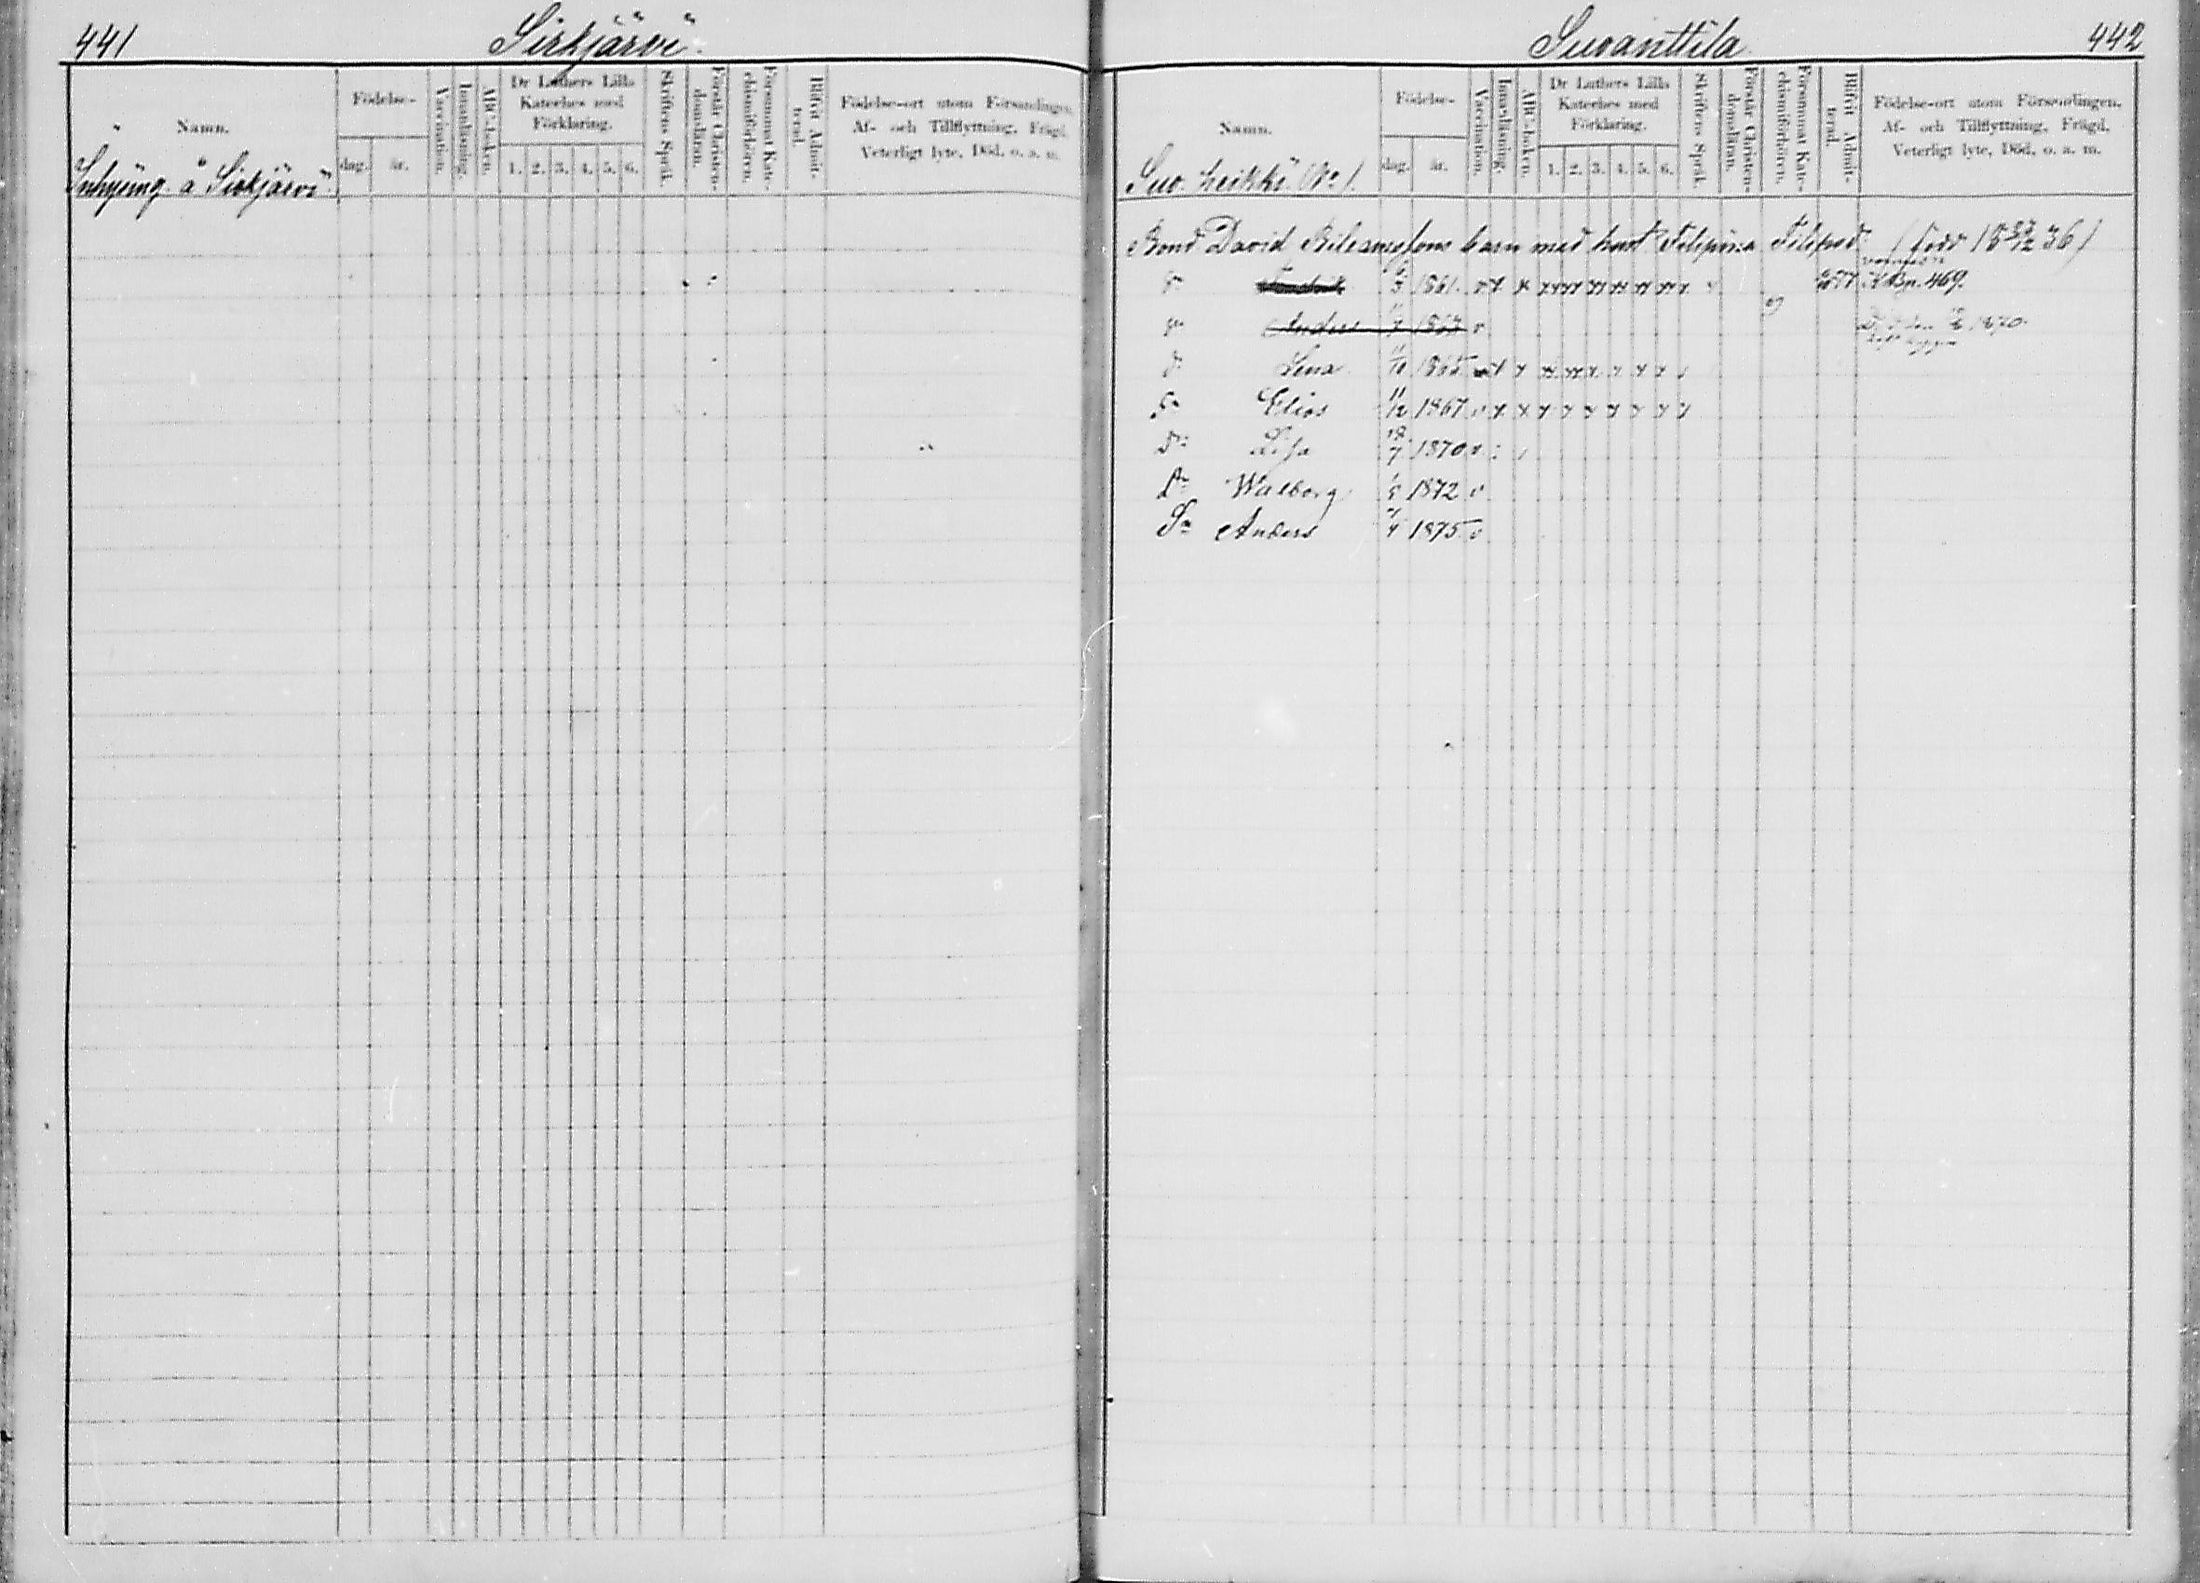 441
Sirkjärvi
Namn.
Födelse-
dag.
år.
Vaccination.
Innanläsning.
ABC-boken.
Dr Luthers Lilla
Kateches med
Förklaring.
1. 2. 3. 4. 5. 6.
Skriftens Språk.
Förstår Christen-
domsläran.
Försummat Kate-
chismiförhören.
Blifvit Admit-
terad.
Födelse-ort utom Församlingen.
Af- och Tillflyttning. Frägd.
Veterligt lyte. Död. o. s. m.
Inhysing. å Sirkjärvi
Suvanttila
442
Namn.
Födelse-
dag.
år.
Vaccination.
Innanläsning.
ABC-boken.
Dr Luthers Lilla
Kateches med
Förklaring.
1. 2. 3. 4. 5. 6.
Skriftens Språk.
Förstår Christen-
domsläran.
Försummat Kate-
chismiförhören.
Blifvit Admit-
terad.
Födelse-ort utom Församlingen.
Af- och Tillflyttning, Frägd.
Veterligt lyte, Död, o. s. m.
Suv. heikki No 1.
Bond David barn med hust. Filipina Filipsd.
1861. 469.
Anders 1863 1870
Lena 1865
Elias 11/2 1867
Lisa 1870
Walborg 1872
Anders 1875